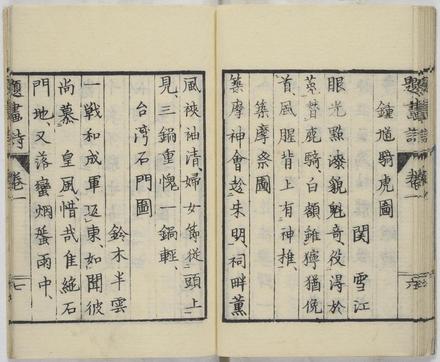 題畫詩 卷一 六
鍾馗騎虎圖
関 雪江
眼光點漆貌魁奇役得於
菟替鹿騎、白額雖獰猶俛
首風腥背上有神椎、
築摩祭圖
築摩神會趁朱明、祠畔薰
風袂袖清婦女飾從頭上
見、三鍋重愧一鍋輕、
台湾石門圖
鈴木半雲
一戰和成軍返東、如聞彼
尚慕 皇風惜哉佳絶石
門地、又落蠻烟蜑雨中、
題畫詩 卷一 七